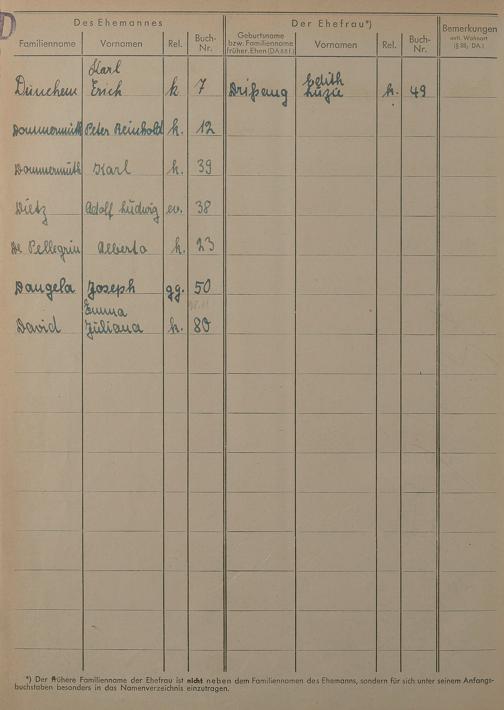 D
Des Ehemannes Der Ehefrau*) Bemerkungen
Familienname Vornamen Rel. Buch-Nr. Geburtsname bzw. Familienname früher. Ehen (DA § 81.) Vornamen Rel. Buch-Nr. evtl. Wohnort (§ 88, DA.)
Karl Edith
Erich k 7 Luzie k. 49
Dommermuth Peter Reinhold k. 12
Dommermuth Karl k. 39
Dietz Adolf Ludwig ev. 38
De Pellegrin Alberto k. 23
Dangela Joseph gg. 50
Emma
David Juliana k. 80
*) Der frühere Familienname der Ehefrau ist nicht neben dem Familiennamen des Ehemanns, sondern für sich unter seinem Anfangs-
buchstaben besonders in das Namenverzeichnis einzutragen.